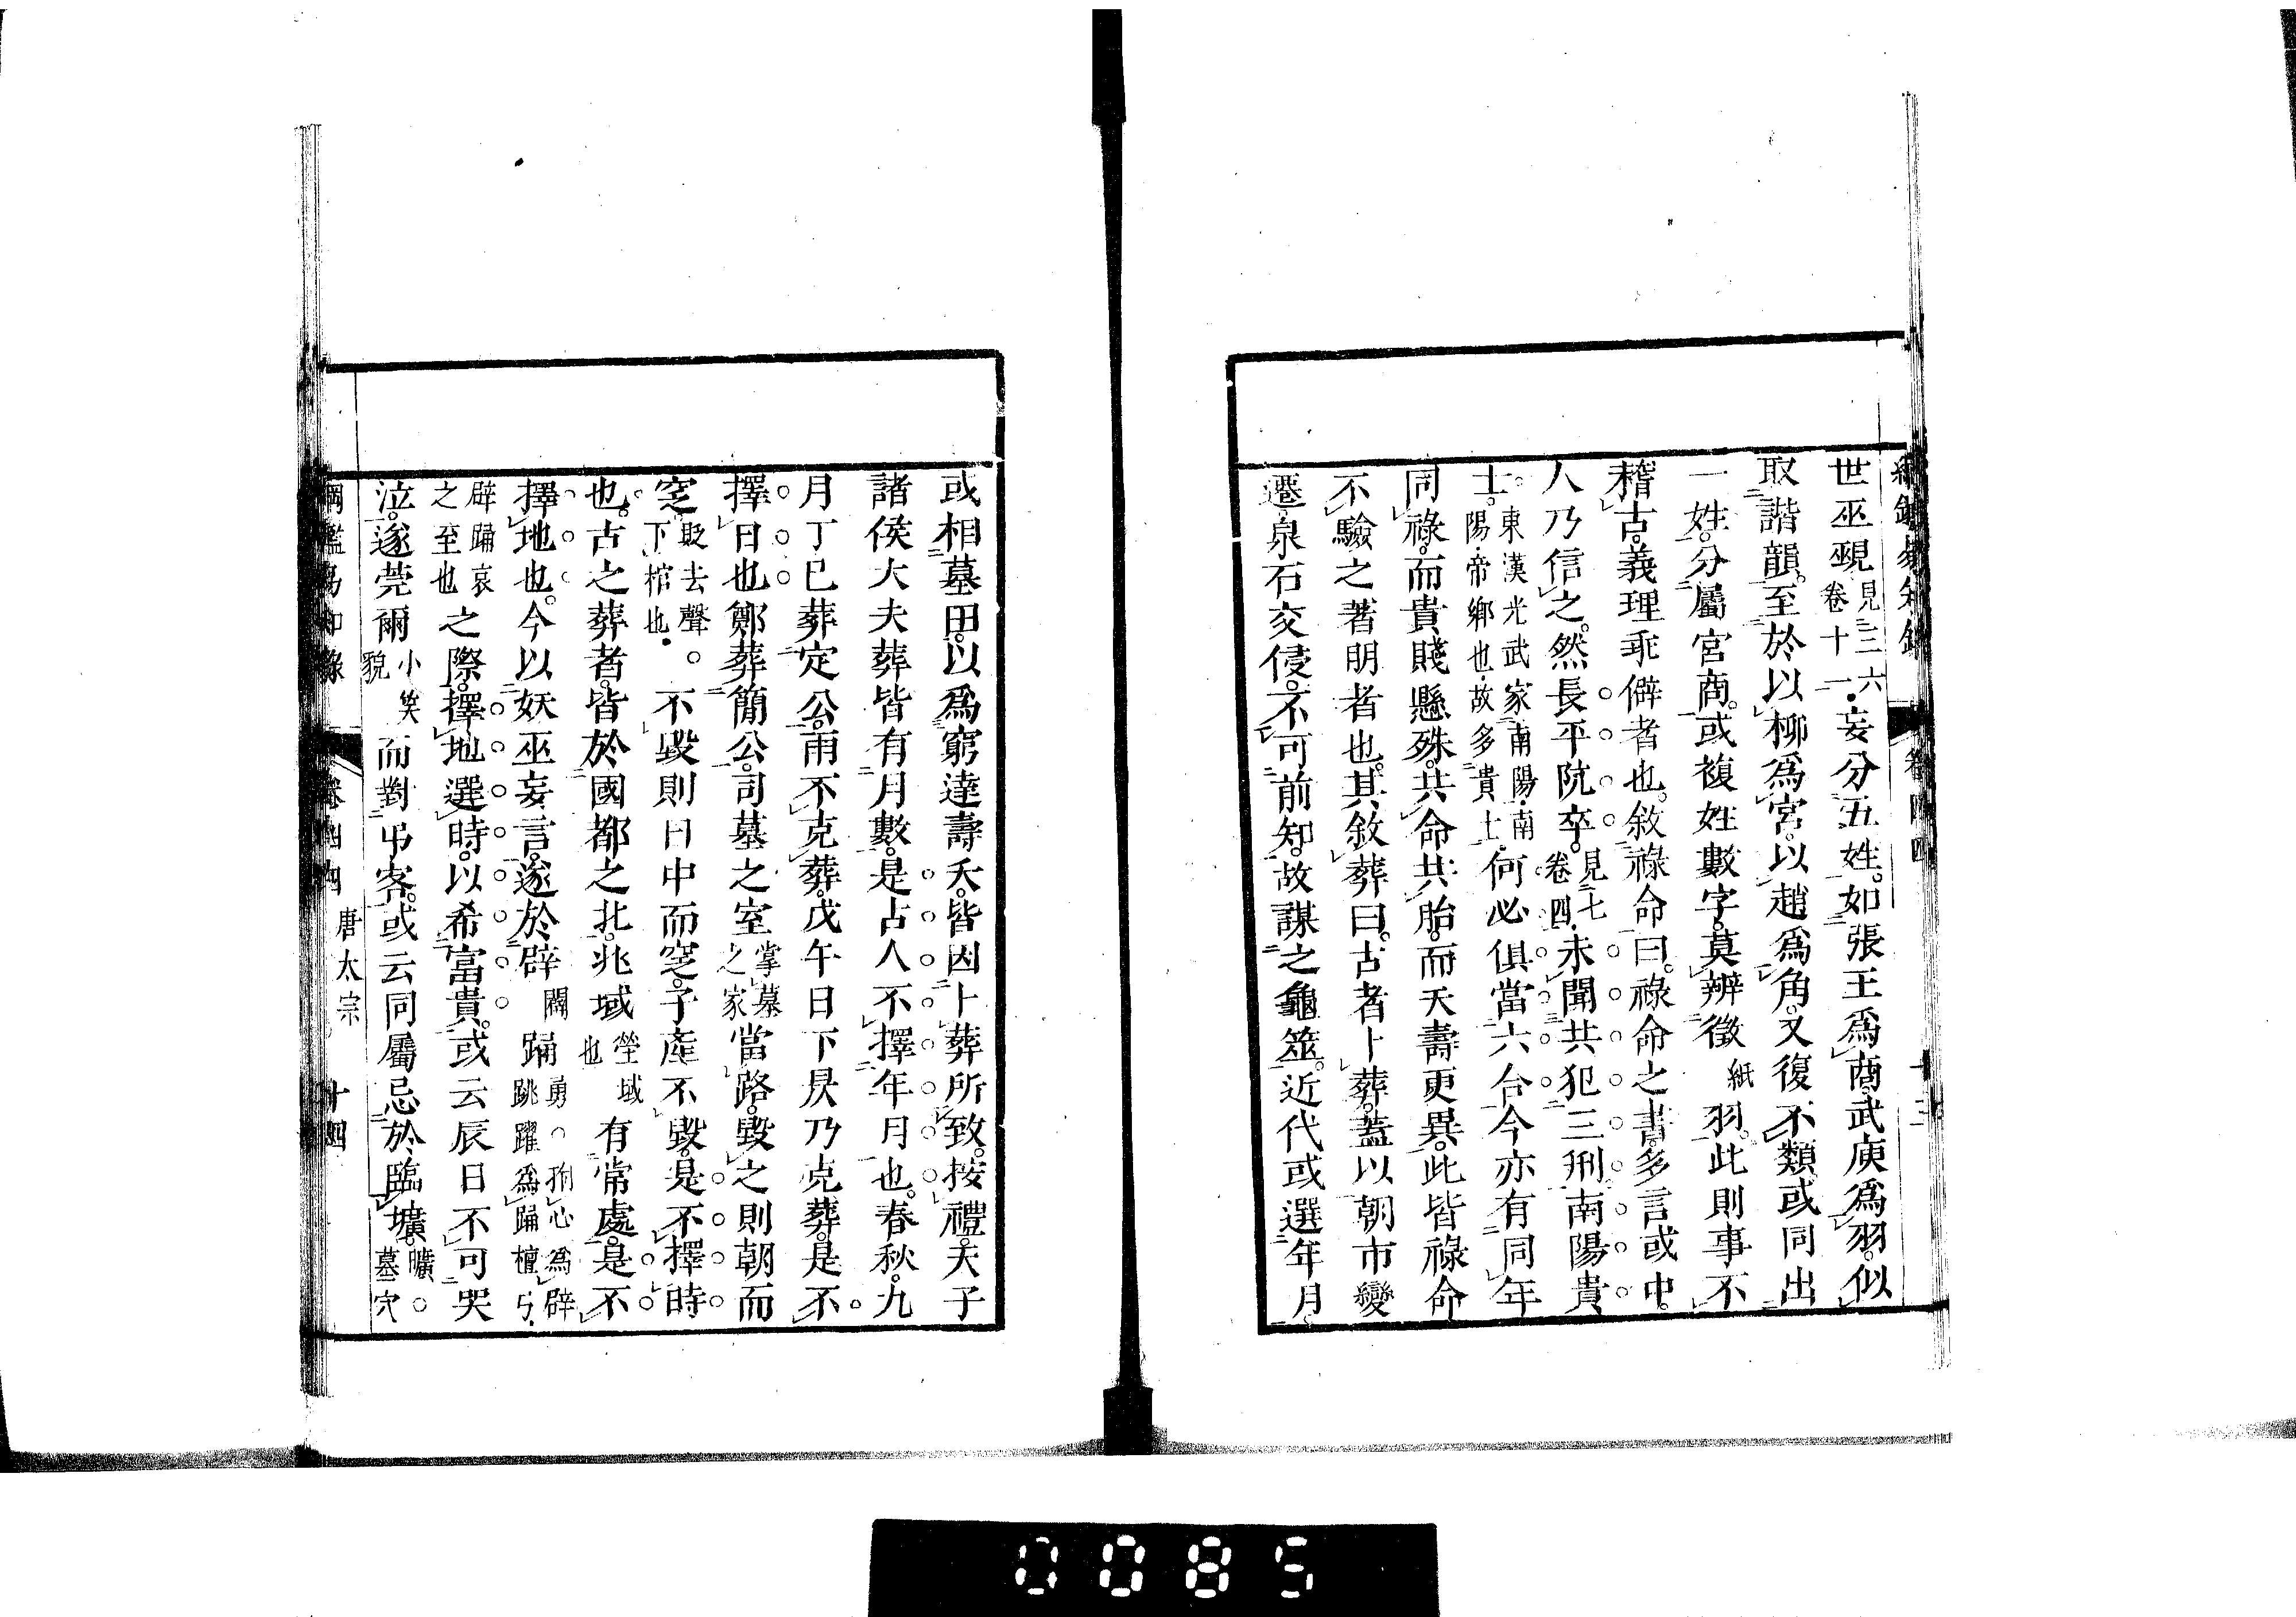 世巫覡見三六卷十一妄分五姓如張王爲商武庾爲羽似
取諧韻至於以柳爲宮以趙爲角又復不類或同出
一姓分屬宮商或複姓數字莫辨徵紙羽此則事不
稽古義理乖僻者也敘祿命曰祿命之書多言或中
人乃信之然長平阬卒見七卷四未聞共犯三刑南陽貴
士東漢光武家南陽南陽帝鄉也故多貴士何必俱當六合今亦有同年
同祿而貴賤懸殊共命共胎而夭壽更異此皆祿命
不驗之著明者也其敘葬曰古者卜葬蓋以朝市變
遷泉石交侵不可前知故謀之龜筮近代或選年月
或相墓田以爲窮達壽夭皆因卜葬所致按禮天子
諸侯大夫葬皆有月數是古人不擇年月也春秋九
月丁巳葬定公雨不克葬戊午日下昃乃克葬是不
擇日也鄭葬簡公司墓之室掌墓之家當路毀之則朝而
窆貶去聲下棺也不毀則日中而窆子產不毀是不擇時
也古之葬者皆於國都之北兆域塋域也有常處是不
擇地也今以妖巫妄言遂於辟闢踊勇拊心爲辟跳躍爲踊檀弓
辟踊哀之至也之際擇地選時以希富貴或云辰日不可哭
泣遂莞爾小笑貌而對弔客或云同屬忌於臨壙曠墓穴
綱鑑易知錄 卷四四 唐太宗 十四
0085